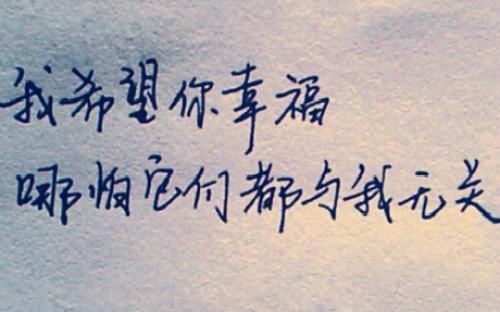 我希望你幸福
哪怕它们都与我无关